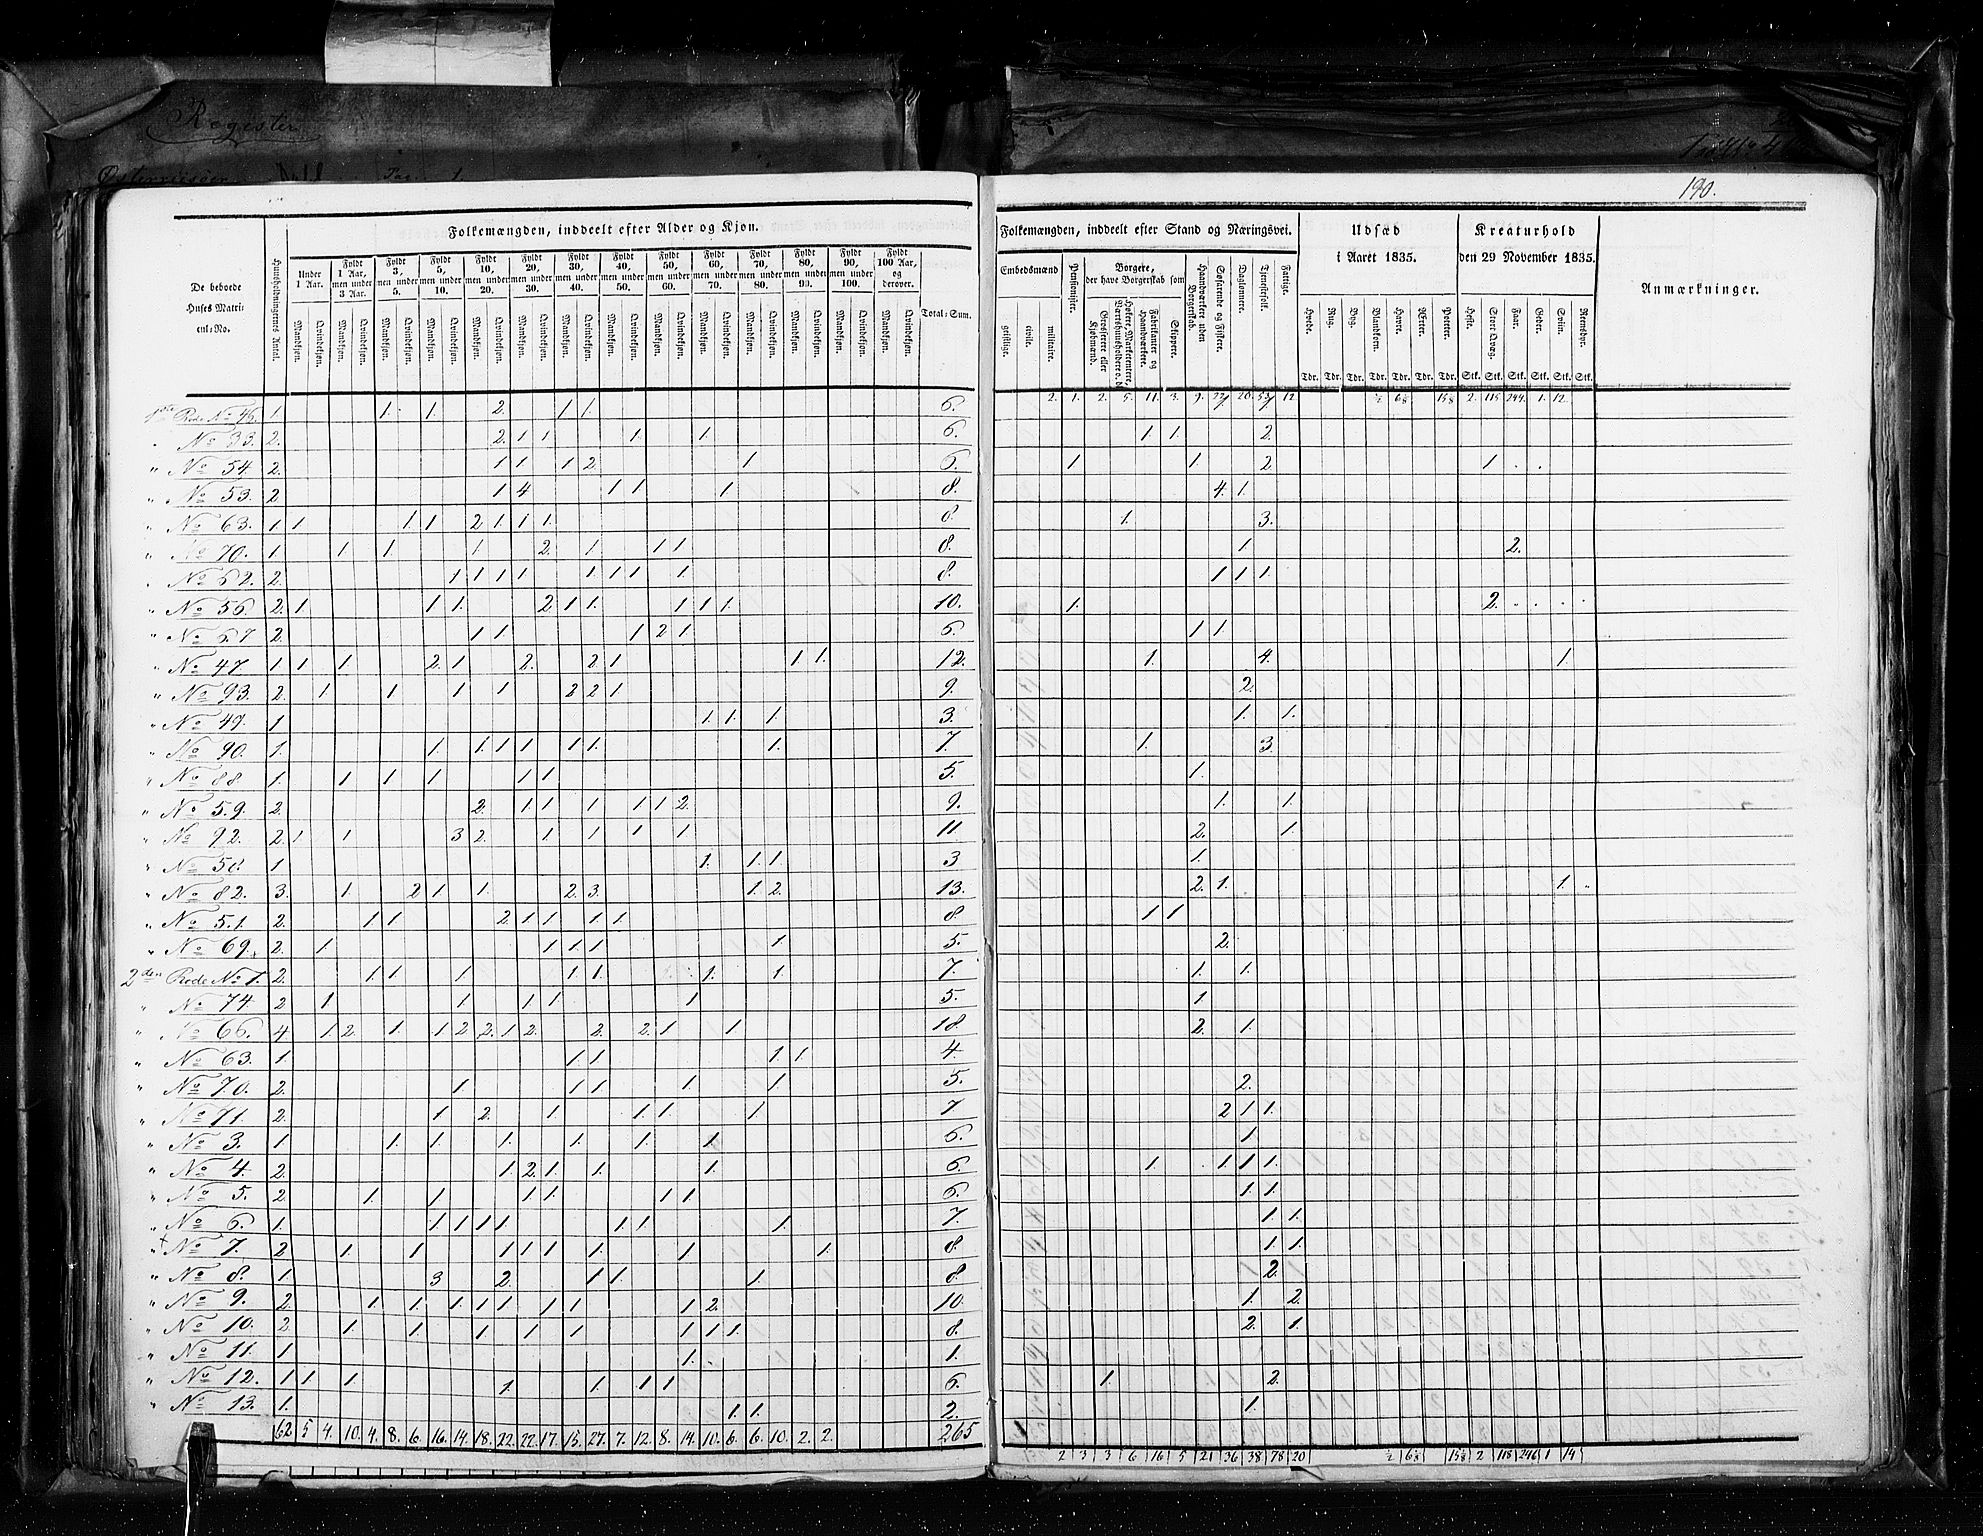 Register
Pag. 1.
190.
Folkemængden, inddeelt efter Alder og Kjøn.
De beboede Huses Matricul-No.
Huusholdningernes Antal.
Under 1 Aar.
Fyldt 1 Aar, men under 3 Aar.
Fyldt 3, men under 5.
Fyldt 5, men under 10.
Fyldt 10, men under 20.
Fyldt 20, men under 30.
Fyldt 30, men under 40.
Fyldt 40, men under 50.
Fyldt 50, men under 60.
Fyldt 60, men under 70.
Fyldt 70, men under 80.
Fyldt 80, men under 90.
Fyldt 90, men under 100.
Fyldt 100 Aar, og derover.
Mandkjøn. Qvindekjøn.
Total-Sum.
Folkemængden, inddeelt efter Stand og Næringsvei.
Embedsmænd
geistlige. civile. militaire.
Pensionister.
Borgere, der have Borgerskab som
Grosserere eller Kjøbmænd.
Høkere, Marketentere, Værtshuusholdere o. d.
Fabrikanter og Haandværkere.
Skippere.
Haandværkere uden Borgerskab.
Søfarende og Fiskere.
Daglønnere.
Tjenestefolk.
Fattige.
Udsæd i Aaret 1835.
Hvede. Rug. Byg. Blandkorn. Havre. Ærter. Poteter.
Tdr. Tdr. Tdr. Tdr. Tdr. Tdr. Tdr.
Kreaturhold den 29 November 1835.
Heste. Stort Qvæg. Faar. Geder. Sviin. Reensdyr.
Stk. Stk. Stk. Stk. Stk. Stk.
Anmærkninger.
2. 1. 2. 5. 11. 3. 9. 12. ½ 2. 115 244. 1. 12.
1ste Rode No 46. 1. 1. 1. 2. 1 1. 6.
" No 33. 2. 2. 1 1 1. 1. 6. 1. 1. 2.
" No 54. 2. 1 1. 1 2. 1. 6. 1 1. 2. 1
" No 53. 2 1 4 1 1. 1. 8. 4. 1.
" No 63. 1. 1 1 1. 2 1. 1. 1. 8. 1. 3.
" No 70. 1. 1 1. 1. 2. 1 1 1. 8. 1. 2.
" No 62. 2. 1 1 1. 1 1 1 1. 1. 8. 1 1 1.
" No 56. 2. 1 1 1. 2 1 1. 1 1 1. 10. 1. 2.
" No 67 2. 1 1. 1 2 1. 6. 1 1.
" No 47 1. 1 1. 2. 1. 2. 2 1. 1 1. 12. 1. 4. 1.
" No 93. 2. 1. 1 1. 1 2 2 1 9. 2.
" No 49. 1 1. 1. 1. 3. 1. 1.
" No 90. 1. 1. 1. 1 1. 1 1. 1. 7. 1. 3.
" No 88. 1. 1 1. 1. 1 1. 5. 1.
" No 59. 2. 2. 1 1 1 1 1 2. 9. 1. 1.
" No 92. 2. 1 1. 3 2. 1. 1. 1 1. 11 2. 1.
" No 58. 1 1. 1. 1. 3 1.
" No 82. 3. 1 2 1. 1. 2. 3. 1. 2. 13. 2. 1. 1.
" No 51. 2. 1 1 2. 1 1 1 1 8. 1 1
" No 69. 2. 1 1. 1. 1 1. 5. 2.
2den Rode No 1. 2. 1 1. 1 1 1. 1. 1. 7. 1. 1.
" No 74 2 1 1. 1 1 1 5. 1
" No 66. 4 1. 2. 1. 1 2 2. 1 2. 2. 2. 1 1 18. 2. 1.
" No 63. 1. 1 1. 1 1. 4.
" No 70. 2. 1. 1 1. 1. 1. 5. 2.
" No 71. 2. 1. 2. 1. 1 1. 1. 7 2 1. 1.
" No 3. 1. 1. 1. 1. 1. 1. 1. 6. 1.
" No 4. 2. 1. 2 1. 1. 1. 6. 1. 1. 1 1.
" No 5. 2. 1. 1. 1 1. 1 1. 6. 1. 1.
" No 6. 1. 1. 1 1 1. 1 1. 1. 7. 1. 1.
" No 7. 2 1. 1. 1 1 1. 1. 1. 1. 8. 1. 1.
" No 8. 1. 3 2. 1 1. 1. 8. 2.
" No 9. 2. 1 1. 1. 1 1. 1 1. 1 2. 10. 1. 2.
" No 10. 2. 1. 1. 1. 1. 1. 1 1 1. 8. 2. 1.
" No 11. 1 1. 1.
" No 12. 1 1 1. 1. 1. 1 1. 6. 1. 2.
" No 13. 1. 1. 1. 2. 1.
62 5 4. 10. 4. 8. 6. 16. 14. 18. 22. 22. 17. 15. 27. 7. 12. 8. 14. 10. 6. 6. 10. 2. 2. 265
2 3 3 6 16 5 21 36 38 78 20 ½ 2 118 246 1 14